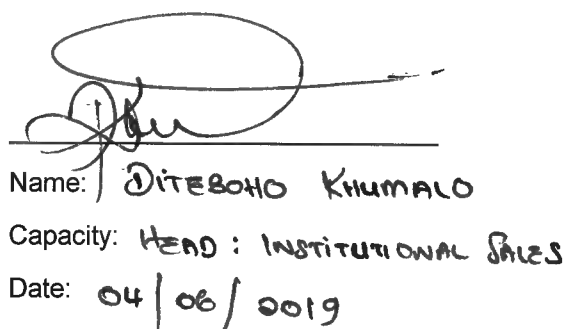 Name: DITEBOHO KHUMALO
Capacity: HEAD : INSTITUTIONAL SALES
Date: 04/06/2019